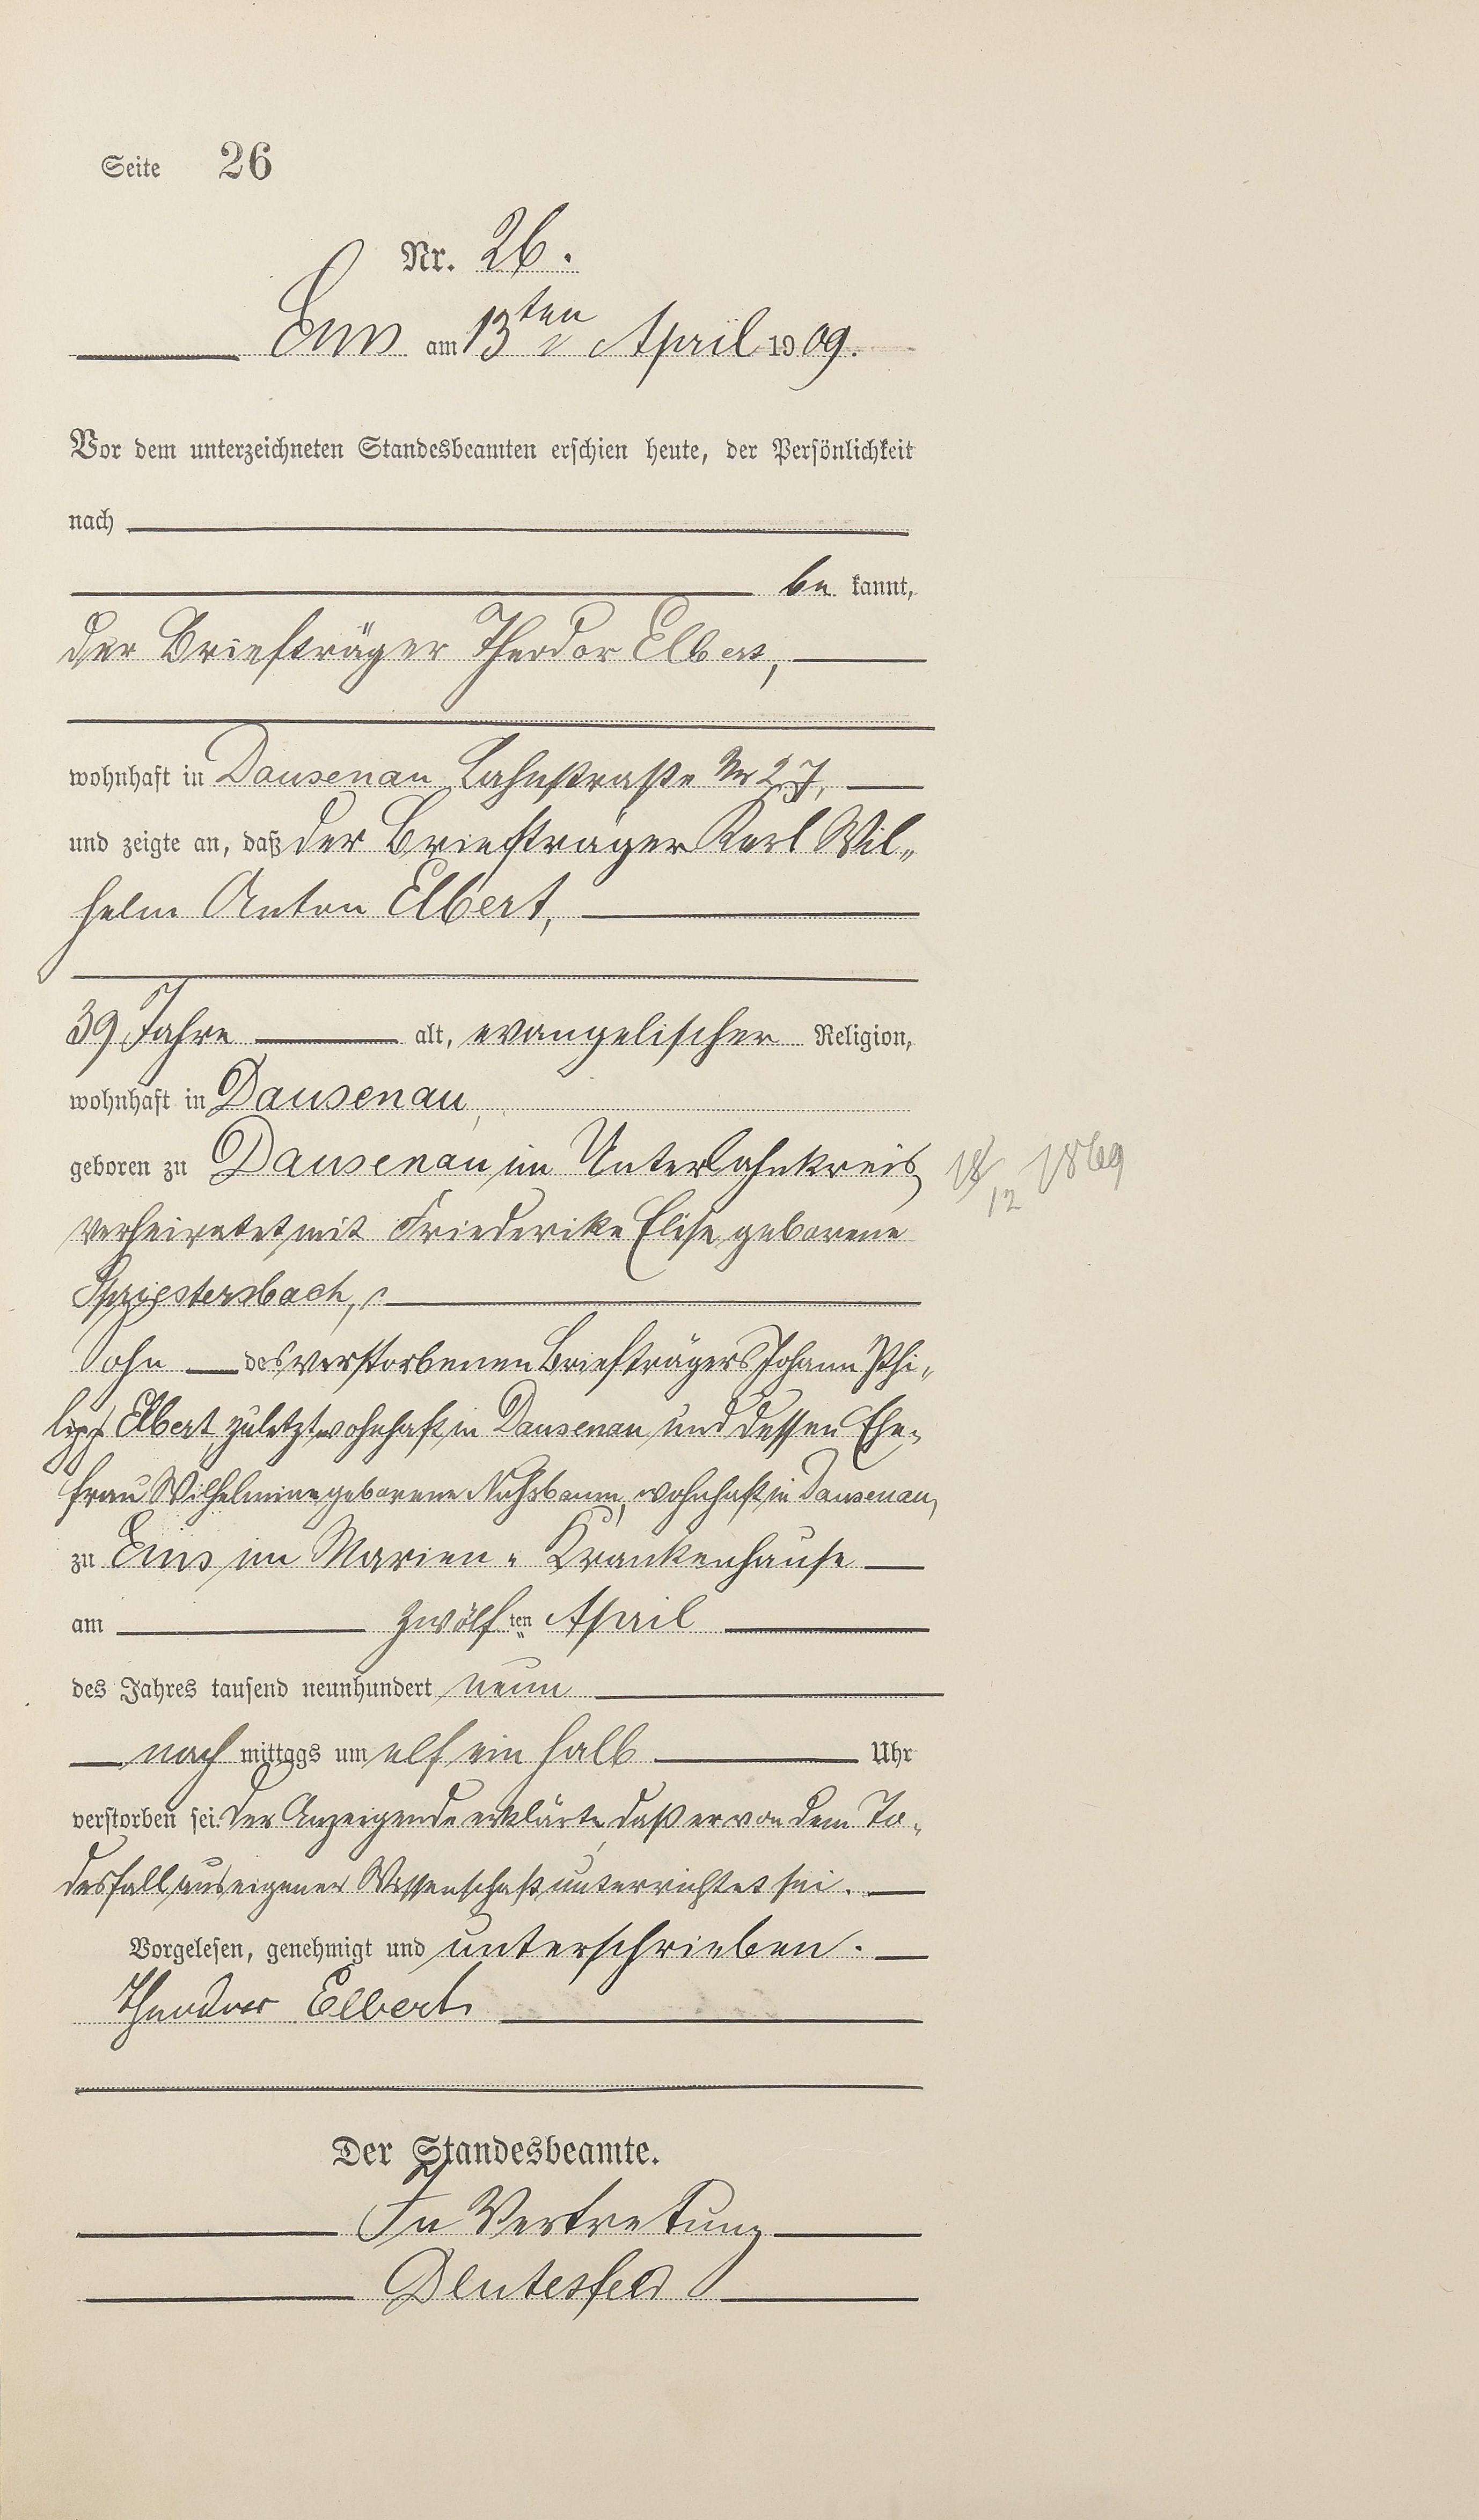 Seite 26
Nr. 26.
Ems am 13ten April 1909.
Vor dem unterzeichneten Standesbeamten erschien heute, der Persönlichkeit
nach
be kannt,
der Briefträger Theodor Elbert,
wohnhaft in Dausenau Lahnstraße Nr 27,
und zeigte an, daß der Briefträger Karl Wil„
helm Anton Elbert,
39 Jahre alt, evangelischer Religion,
wohnhaft in Dausenau,
geboren zu Dausenau im Unterlahnkreis, 18/12 1869
verheiratet mit Friederike Elise geborene
Spriestersbach,
Sohn des verstorbenen Briefträgers Johann Phi„
lipp Elbert, zuletzt wohnhaft in Dausenau und dessen Ehe„
frau Wilhelmine geborene Nußbaum, wohnhaft in Dausenau,
zu Ems im Marien„ Krankenhause
am zwölf ten April
des Jahres tausend neunhundert neun
nach mittags um elf ein halb Uhr
verstorben sei. Der Anzeigende erklärte, daß er von dem To„
desfall aus eigener Wissenschaft unterrichtet sei.
Vorgelesen, genehmigt und unterschrieben.
Theodor Elbert
Der Standesbeamte.
In Vertretung